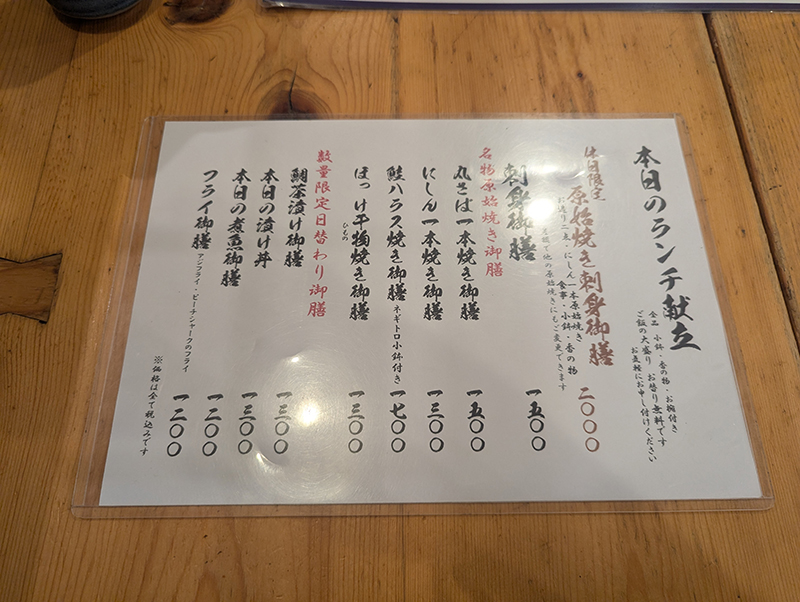 本日のランチ献立
全品 小鉢・香の物・お椀付き
ご飯の大盛り お替り無料です
お気軽にお申し付けください
休日限定
原始焼き刺身御膳 二〇〇〇
お造り二点・にしん一本原始焼き
食事・小鉢・香の物
て他の原始焼きにもご変更できます
刺身御膳 一五〇〇
名物原始焼き御膳
丸さば一本焼き御膳 一五〇〇
にしん一本焼き御膳 一三〇〇
鮭ハラス焼き御膳 ネギトロ小鉢付き 一七〇〇
ほっけ干物焼き御膳 一三〇〇
ひもの
数量限定日替わり御膳
鯛茶漬け御膳 一三〇〇
本日の漬け丼 一三〇〇
本日の煮魚御膳 一二〇〇
フライ御膳 一二〇〇
アジフライ・ビーチシャークのフライ
※価格は全て税込みです